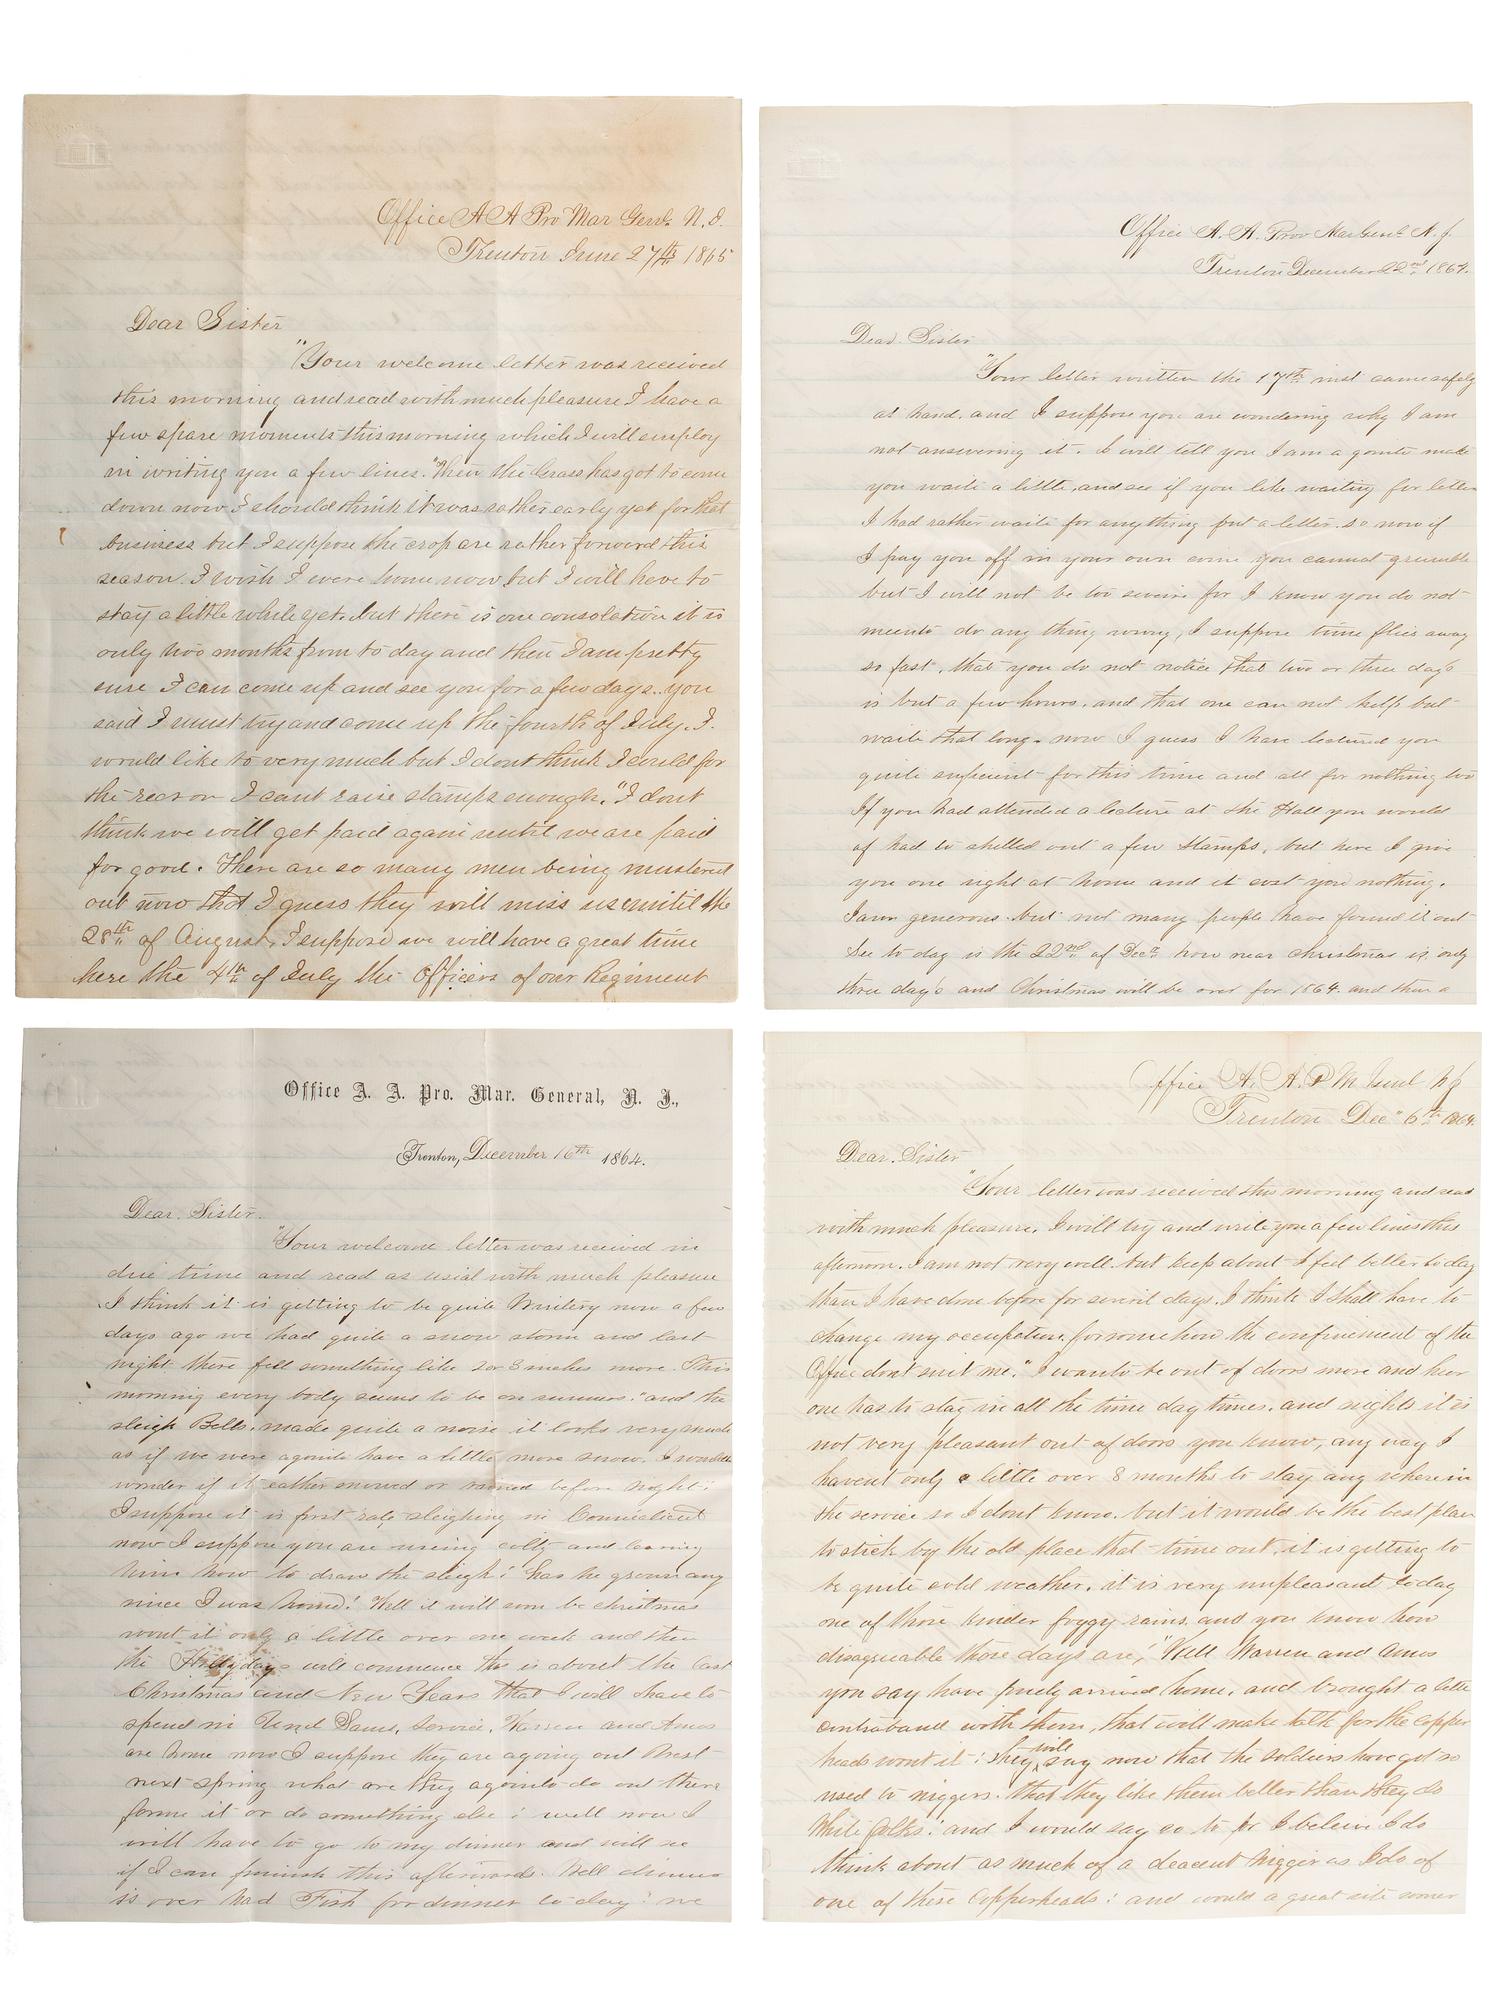 Office A A Pro Mar Genl. N. J.
Trenton June 27th 1865
Dear Sister
"Your welcome letter was received
this morning and read with much pleasure I have a
few spare moments this morning which I will employ
in writing you a few lines. "Then the Grass has got to come
down now I should think it was rather early yet for that
business but I suppose the crop are rather forward this
season. I wish I were home now but I will have to
stay a little while yet. but there is one consolation it is
only two months from to day and then I am pretty
sure I can come up and see you for a few days. you
said I must try and come up the fourth of July. I.
would like to very much but I dont think I could for
the reason I cant raise stamps enough. "I dont
think we will get paid again until we are paid
for good. There are so many men being mustered
out now that I guess they will miss us until the
28th of August. I suppose we will have a great time
here the 4th of July the Officers of our Regiment
Office A. A. Prov Mar Genl N. J.
Trenton December 22nd 1864.
Dear Sister
"Your letter written the 17th inst came safely
at hand, and I suppose you are wondering why I am
not answering it. I will tell you I am a gointo make
you waite a little, and see if you like waiting for letters
I had rather waite for anything but a letter. so now if
I pay you off in your own coine you cannot grumble
but I will not be too severe for I know you do not
meento do any thing wrong, I suppose time flies away
so fast, that you do not notice that two or three day's
is but a few hours, and that one can not help but
waite that long. now I guess I have lectured you
quite suficient for this time and all for nothing too
If you had attended a lecture at the Hall you would
of had to shilled out a few Stamps, but here I give
you one right at home and it cost you nothing.
I am generous but not many people have found it out
See to day is the 22nd of Dec" how near Christmas is, only
three day's and Christmas will be over for 1864. and then a
Office A. A. Pro. Mar. General, N. J.,
Trenton, December 16th 1864.
Dear. Sister.
"Your welcome letter was received in
due time and read as usial with much pleasure
I think it is getting to be quite Wintery now a few
days ago we had quite a snow storm and last
night there fell something like 2 or 3 inches more. This
morning every body seems to be on runners." and the
sleigh Bells. made quite a noise it looks very much
as if we were agointe have a little more snow. I would
wonder if it eather snowed or rained before night!
I suppose it is first rate sleighing in Connecticut
now I suppose you are useing colty and learning
him how to draw the sleigh! has he grown any
since I was home! Well it will soon be christmas
wont it only a little over one week and then
the Hollydays will commence this is about the last
Christmas and New Years that I will have to
spend in Uncl Sams, Service. Warren and Amos
are home now I suppose they are agoing out West
next spring what are they agointo do out there
farme it or do something else! well now I
will have to go to my dinner and will see
if I can finish this afterward. Well dinner
is over had Fish for dinner to day! we
Office A. A. P M Genl N J
Trenton Dec" 6th 1864.
Dear. Sister
"Your letter was received this morning and read
with much pleasure. I will try and write you a few lines this
afternoon. I am not very well. but keep about I feel better to day
than I have done before for severil days. I think I shall have to
change my occupation. for some how the confinement of the
Office dont suit me." I wanto be out of doors more and heer
one has to stay in all the time day times. and nights it is
not very pleasant out of doors you know, any way I
havent only a little over 8 months to stay any where in
the service so I dont know. but it would be the best plan
to stick by the old place that time out. it is getting to
be quite cold weather. it is very unpleasant to day
one of those kinder foggy rains. and you know how
disagreeable those days are! "Well Warren and Amos
you say have finely arrived home. and brought a little
contraband with them, that will make talk for the copper
heads wont it! they will say now that the soldiers have got so
used to niggers. that they like them better than they do
White folks! and I would say so to for I beleive I do
think about as much of a deacent Nigger as I do of
one of these Copperheads! and would a great eite sooner